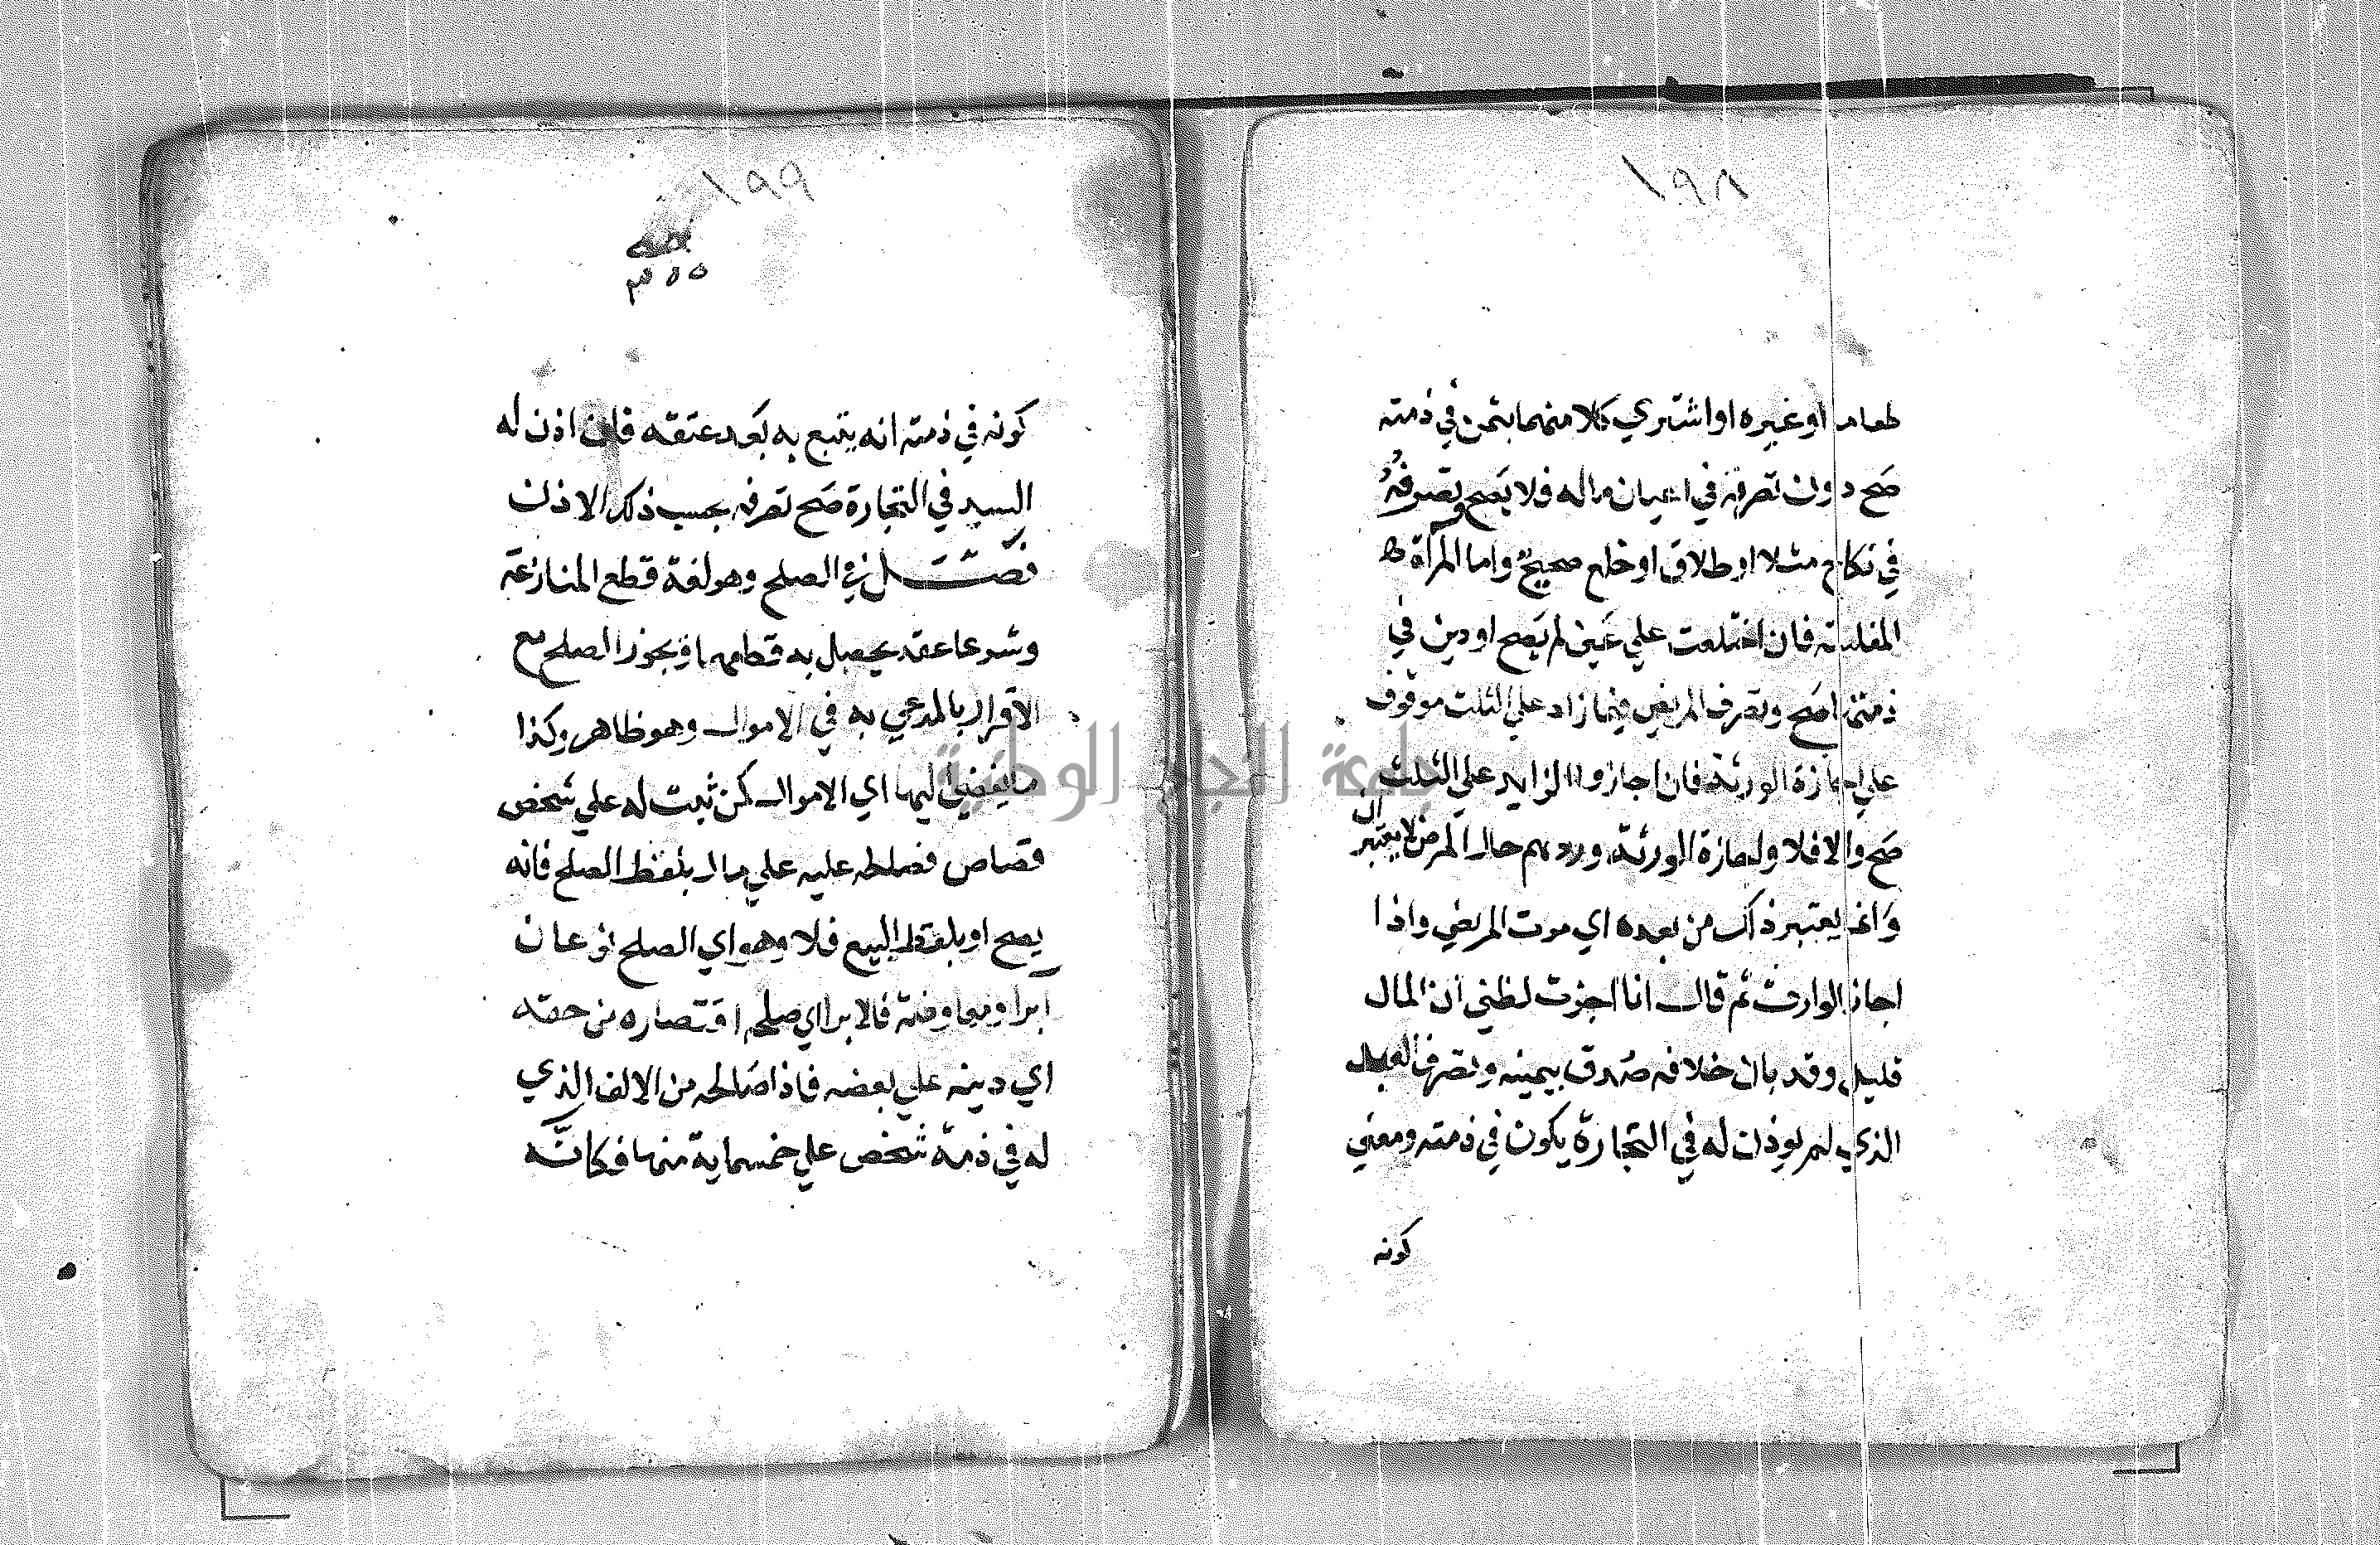 ١٩٨
طعاما او غيره او اشتري كلا منهما بثمن في ذمته
صح دون تصرفه في اعيان ماله فلا يصح وتصرفه
في نكاح مثلا او طلاق او خلع صحيح واما المرأة
المفلسة فان اختلعت علي عين لم يصح او دين في
ذمتها صح وتصرف المريض فيما زاد علي الثلث موقوف
علي اجازة الورثة فان اجازوا الزايد علي الثلث
صح والا فلا واجازة الورثة وردهم حال المرض لا يعتبران
وانما يعتبر ذلك من بعده اي موت المريض واذا
اجاز الوارث ثم قال انا اجزت لظني ان المال
قليل وقد بان خلافه صدق بيمينه وتصرف العبد
الذي لم يوذن له في التجارة يكون في ذمته ومعني
كونه
١٩٩
كونه في ذمته انه يتبع به بعد عتقه فان اذن له
السيد في التجارة صح تصرفه بحسب ذلك الاذن
فصل في الصلح وهو لغة قطع المنازعة
وشرعا عقد يحصل به قطعها ويجوز الصلح مع
الاقرار بالمدعي به في الاموال وهو ظاهر وكذا
ما يفضي اليها اي الاموال كمن ثبت له علي شخص
قصاص فصالحه عليه علي مال بلفظ الصلح فانه
يصح او بلفظ البيع فلا وهو اي الصلح نوعان
ابرا ومعاوضة فالابرا اي صلحه اقتصاره من حقه
اي دينه علي بعضه فاذا صالحه من الالف الذي
له في ذمة شخص علي خمسماية منها فكانه
جامعة النجاح الوطنية